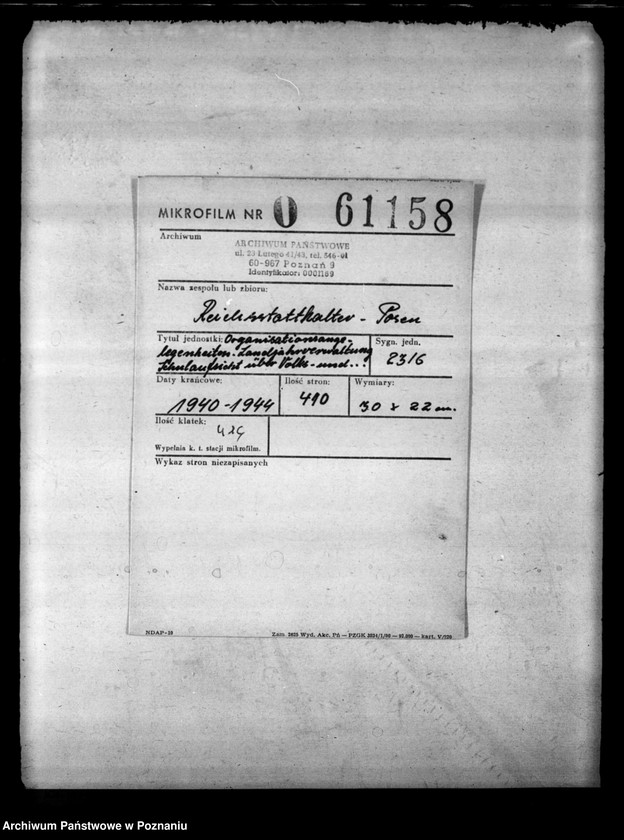 MIKROFILM NR O 61158
Archiwum
ARCHIWUM PAŃSTWOWE
ul. 23 Lutego 41/43, tel. 546-01
60-967 Poznań 9
Identyfikator: 0001189
Nazwa zespołu lub zbioru:
Reichsstatthalter - Posen
Tytuł jednostki: Organisationsange-
legenheiten. Landjahrverwaltung
Schulaufsicht über Volks- und...
Sygn. jedn.
2316
Daty krańcowe:
1940-1944
Ilość stron:
410
Wymiary:
30 x 22 cm.
Ilość klatek:
414
Wypełnia k. t. stacji mikrofilm.
Wykaz stron niezapisanych
NDAP-10
Zam. 2025 Wyd. Akc. Pń — PZGK
kart. V/120
Archiwum Państwowe w Poznaniu